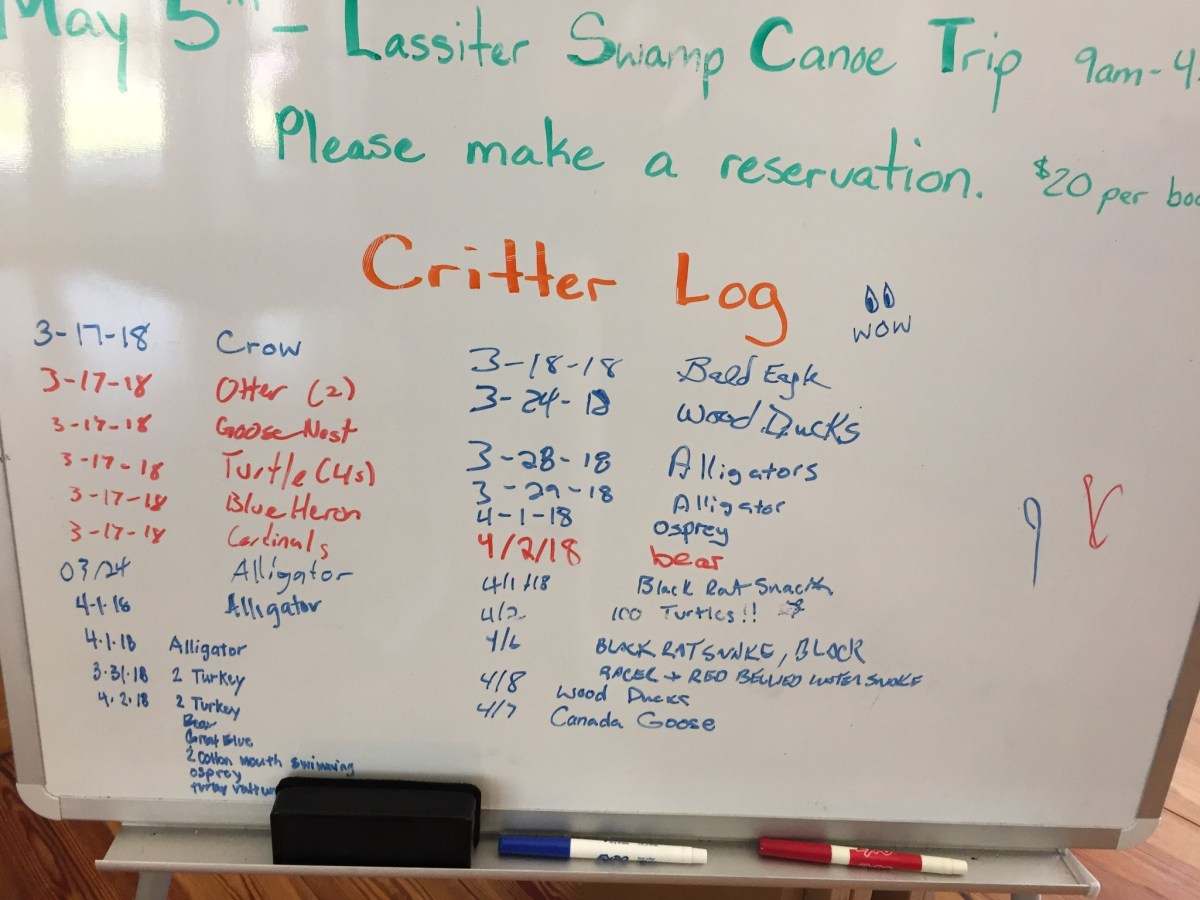 May 5th - Lassiter Swamp Canoe Trip 9am-4
Please make a reservation. $20 per boa
Critter Log
WOW
3-17-18 Crow
3-17-18 Otter (2)
3-17-18 Goose Nest
3-17-18 Turtle (4s)
3-17-18 Blue Heron
3-17-18 Cardinals
03/24 Alligator
4-1-18 Alligator
4.1.18 Alligator
3.31.18 2 Turkey
4.2.18 2 Turkey
Bear
Great Blue
2 Cotton mouth swimming
osprey
turkey
3-18-18 Bald Eagle
3-24-18 Wood Ducks
3-28-18 Alligators
3-29-18 Alligator
4-1-18 osprey
4/2/18 bear
4/1/18 Black Rat
4/2 100 Turtles!!
4/6 BLACK RATSNAKE, BLACK
RACER + RED BELLIED WATER SNAKE
4/8 Wood Ducks
4/7 Canada Goose